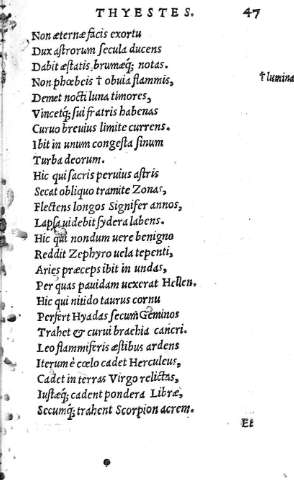 THYESTES. 47
Non æternæ facis exortu
Dux astrorum secula ducens
Dabit æstatis, brumæq; notas.
Non phœbeis † obuia flammis,
† lumina
Demet nocti luna timores,
Vincetq; sui fratris habenas
Curuo breuius limite currens.
Ibit in unum congesta sinum
Turba deorum.
Hic qui sacris peruius astris
Secat obliquo tramite Zonas,
Flectens longos Signifer annos,
Lapsa uidebit sydera labens.
Hic qui nondum uere benigno
Reddit Zephyro uela tepenti,
Aries præceps ibit in undas,
Per quas pauidam uexerat Hellen.
Hic qui nitido taurus cornu
Perfert Hyadas secum Geminos
Trahet & curui brachia cancri.
Leo flammiferis æstibus ardens
Iterum è cœlo cadet Herculeus,
Cadet in terras Virgo relictas,
Iustæq; cadent pondera Libræ,
Secumq; trahent Scorpion acrem.
Et